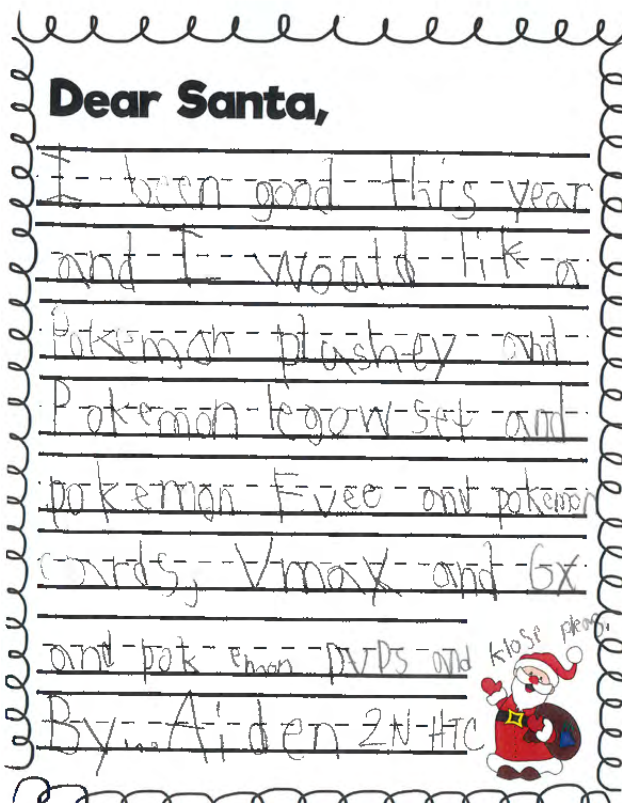 Dear Santa,
I been good this year
and I would lik a
Pokemon plushey and
Pokemon legow set and
pokemon Evee and pokemon
cards, Vmax and GX
and pokemon pvps and klose pleas.
By... Aiden 2N-HTC